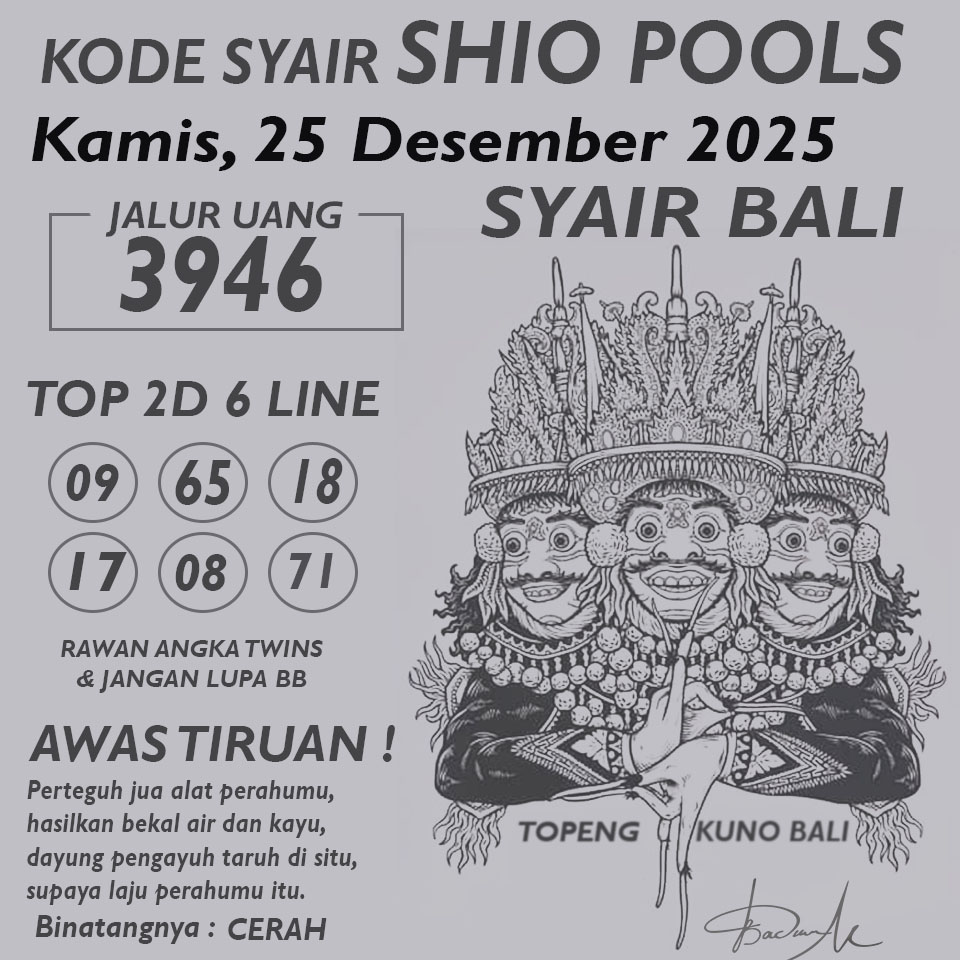 KODE SYAIR SHIO POOLS
Kamis, 25 Desember 2025
SYAIR BALI
JALUR UANG
3946
TOP 2D 6 LINE
09 65 18
17 08 71
RAWAN ANGKA TWINS
& JANGAN LUPA BB
AWAS TIRUAN !
Perteguh jua alat perahumu,
hasilkan bekal air dan kayu,
dayung pengayuh taruh di situ,
supaya laju perahumu itu.
Binatangnya : CERAH
TOPENG KUNO BALI